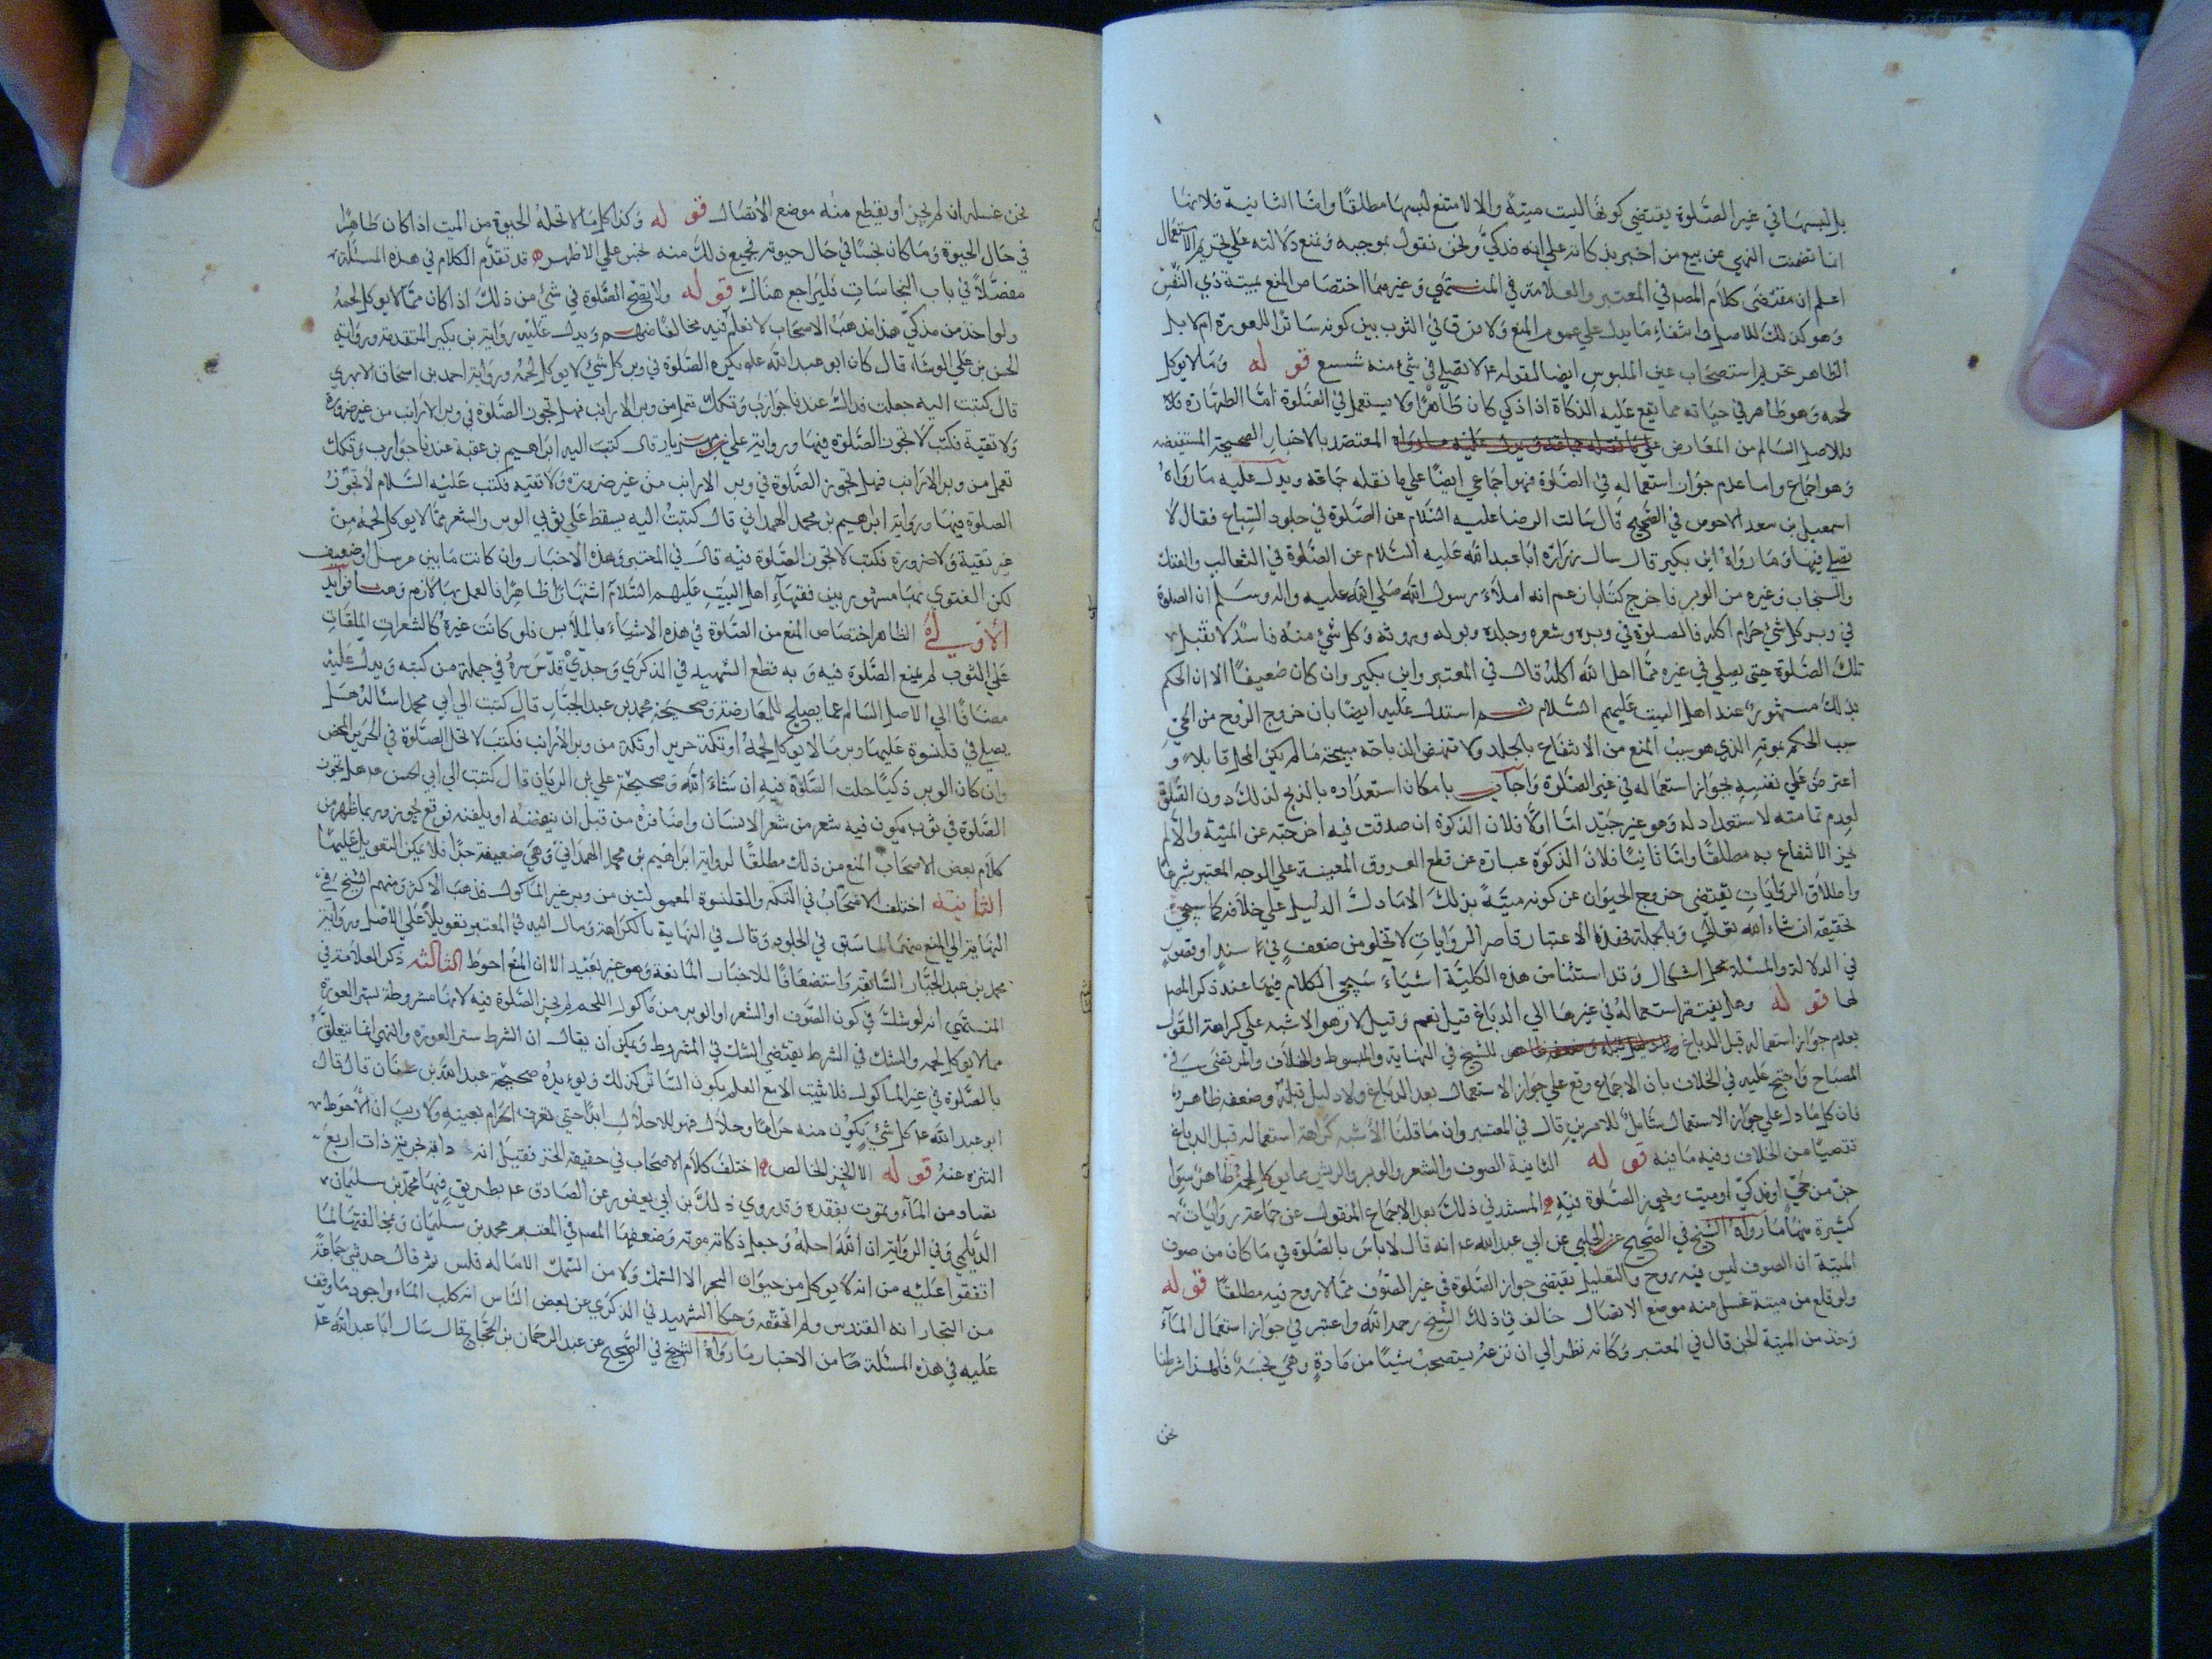 بل لبسها في غير الصلوة يقتضي كونها ليست ميتة والا لامتنع لبسها مطلقا واما الثانية فلانها
انما تضمنت النهي عن بيع من اخبر بذكاته علي انه مذكي ونحن نقول بموجبه ونمنع دلالته علي تحريم الاستعمال
اعلم ان مقتضى كلام المصم في المعتبر والعلامة في المنتهي وغيرهما اختصاص المنع بميتة ذي النفس
وهو كذلك للاصل وانتفاء ما يدل علي عموم المنع ولا فرق في الثوب بين كونه ساترا للعورة ام لا بل
الظاهر تحريم استصحاب غير الملبوس ايضا لقوله عم لا تصل في شئ منه شسع قوله وما لا يوكل
لحمه وهو طاهر في حياته مما يقع عليه الذكاة اذا ذكي كان طاهرا ولا يستعمل في الصلوة اما الطهارة فلا
فللاصل السالم من المعارض المعتضد بالاخبار الصحيحة المستفيضه
وهو اجماع واما عدم جواز استعماله في الصلوة فهو اجماعي ايضا علي ما نقله جماعة ويدل عليه ما رواه
اسمعيل بن سعد الاحوص في الصحيح قال سالت الرضا عليه السلام عن الصلوة في جلود السباع فقال لا
تصل فيها وما رواه ابن بكير قال سال زرارة ابا عبد الله عليه السلام عن الصلوة في الثعالب والفنك
والسنجاب وغيره من الوبر فاخرج كتابا زعم انه املاء رسول الله صلي الله عليه واله وسلم ان الصلوة
في وبر كل شئ حرام اكله فالصلوة في وبره وشعره وجلده وبوله وروثه وكل شئ منه فاسد لا تقبل
تلك الصلوة حتى يصلي في غيره مما احل الله اكله قال في المعتبر وابن بكير وان كان ضعيفا الا ان الحكم
بذلك مشهور عند اهل البيت عليهم السلام ثم استدل عليه ايضا بان خروج الروح من الحي
سبب الحكم بموته الذي هو سبب المنع من الانتفاع بالجلد ولا تنهض الذباحة مبيحة ما لم يكن المحل قابلا و
اعترض علي نفسه بجواز استعماله في غير الصلوة واجاب بامكان استعداده بالذبح لذلك دون الصلوة
لعدم تمامته لاستعداد له وهو غير جيد اما اولا فلان الذكوة ان صدقت فيه اخرجته عن الميتة والا لم
يجز الانتفاع به مطلقا واما ثانيا فلان الذكوة عبارة عن قطع العروق المعينة علي الوجه المعتبر شرعا
واطلاق الروايات يقتضى خروج الحيوان عن كونه ميتة بذلك الا ما دل الدليل علي خلافه كما سيجئ
تحقيقه ان شاء الله تعالي وبالجملة فهذه الاعتبار قاصر الروايات لا تخلو من ضعف في سند او قصور
في الدلالة والمسئلة محل اشكال وقد استثنا من هذه الكلية اشياء سيجئ الكلام فيها عند ذكر المصم
لها قوله وهل يفتقر استعماله في غيرها الي الدباغ قيل نعم وقيل لا وهو الاشبه علي كراهة القول
بعدم جواز استعماله قبل الدباغ للشيخ في النهاية والمبسوط والخلاف والمرتضى في
المصباح واحتج عليه في الخلاف بان الاجماع وقع علي جواز الاستعمال بعد الدباغ ولا دليل قبله وضعفه ظاهر
فان كل ما دل علي جواز الاستعمال شامل للامرين قال في المعتبر وان ما قلنا الاشبه كراهة استعماله قبل الدباغ
تفصيا من الخلاف وفيه ما فيه قوله الثانية الصوف والشعر والوبر والريش مما يوكل لحمه طاهر سوا
جز من حي او مذكي او ميت وتجوز الصلوة فيه المستند في ذلك بعد الاجماع المنقول عن جماعة روايات
كثيرة منها ما رواه الشيخ في الصحيح عن الحلبي عن ابي عبد الله عم انه قال لا باس بالصلوة في ما كان من صوف
الميتة ان الصوف ليس فيه روح والتعليل يقتضى جواز الصلوة في غير الصوف مما لا روح فيه مطلقا قوله
ولو قلع من ميتة غسل منه موضع الاتصال خالف في ذلك الشيخ رحمه الله واعتبر في جواز استعمال الماء
وخذ من الميتة الجز قال في المعتبر وكانه نظر الي ان نزعه يستصحب شيئا من مادة وهي نجسة فلهذا شرطنا
نحن
نحن غسله ان لم يجز او يقطع منه موضع الاتصال قوله وكذا كل ما لا تحله الحيوة من الميت اذا كان طاهرا
في حال الحيوة وما كان نجسا في حال حيوته فجميع ذلك منه نجس علي الاظهر قد تقدم الكلام في هذه المسئلة
مفصلا في باب النجاسات فليراجع هناك قوله ولا تصح الصلوة في شئ من ذلك اذا كان مما لا يوكل لحمه
ولو اخذ من مذكي هذا مذهب الاصحاب لا نعلم فيه مخالفا منهم ويدل عليه رواية بن بكير المتقدمة ورواية
الحسن بن علي الوشاء قال كان ابو عبد الله عم يكره الصلوة في وبر كل شئ لا يوكل لحمه ورواية احمد بن اسحاق الابهري
قال كتبت اليه جعلت فداك عندنا جوارب وتكك تعمل من وبر الارانب فهل تجوز الصلوة في وبر الارانب من غير ضرورة
ولا تقية فكتب لا تجوز الصلوة فيها ورواية علي بن مهزيار قال كتب اليه ابراهيم بن عقبة عندنا جوارب وتكك
تعمل من وبر الارانب فهل تجوز الصلوة في وبر الارانب من غير ضرورة ولا تقيه فكتب عليه السلام لا تجوز
الصلوة فيها ورواية ابراهيم بن محمد الهمداني قال كتبت اليه يسقط علي ثوبي الوبر والشعر مما لا يوكل لحمه من
غير تقية ولا ضرورة فكتب لا تجوز الصلوة فيه قال في المعتبر وهذه الاخبار وان كانت ما بين مرسل او ضعيف
لكن الفتوى بها مشهور بين فقهاء اهل البيت عليهم السلام اشتهارا ظاهرا فالعمل بها لازم وهنا فوايد
الاولي الظاهر اختصاص المنع من الصلوة في هذه الاشياء بالملابس فلو كانت غيره كالشعرات الملقات
علي الثوب لم يمنع الصلوة فيه وبه قطع الشهيد في الذكرى وجدي قدس سره في جملة من كتبه ويدل عليه
مضافا الي الاصل السالم عما يصلح للمعارضة صحيحة محمد بن عبد الجبار قال كتبت الي ابي محمد اساله هل
يصلي في قلنسوة عليها وبر ما لا يوكل لحمه او تكة حرير او تكة من وبر الارانب فكتب لا تحل الصلوة في الحرير المحض
وان كان الوبر ذكيا حلت الصلوة فيه ان شاء الله وصحيحة علي بن الريان قال كتبت الي ابي الحسن عم هل تجوز
الصلوة في ثوب يكون فيه شعر من شعر الانسان واظفاره من قبل ان ينفضه او يلقيه فوقع تجوز وربما ظهر من
كلام بعض الاصحاب المنع من ذلك مطلقا لرواية ابراهيم بن محمد الهمداني وهي ضعيفة جدا فلا يمكن التعويل عليها
الثانية اختلف الاصحاب في التكه والقلنسوة المعمولتين من وبر غير الماكول فذهب الاكثر ومنهم الشيخ في
النهاية الي المنع منهما لما سبق في الجلود وقال في النهاية بالكراهة ومال اليه في المعتبر تعويلا علي الاصل ورواية
محمد بن عبد الجبار السابقة واستضعافا للاخبار المانعة وهو غير بعيد الا ان المنع احوط الثالثه ذكر العلامة في
المنتهي انه لو شك في كون الصوف او الشعر او الوبر من ماكول اللحم لم تجز الصلوة فيه لانها مشروطة بستر العورة
مما لا يوكل لحمه والشك في الشرط يقتضي الشك في المشروط ويمكن ان يقال ان الشرط ستر العورة والنهي انما تعلق
بالصلوة في غير الماكول فلا يثبت الا مع العلم بكون الساتر كذلك ويويده صحيحة عبد الله بن سنان قال قال
ابو عبد الله عم كل شئ يكون منه حراما وحلال فهو لك حلال ابدا حتى تعرف الحرام بعينه ولا ريب ان الاحوط
التنزه عنه قوله الا الخز الخالص اختلف كلام الاصحاب في حقيقة الخز فقيل انه دابة بحرية ذات اربع
تصاد من الماء وتموت بفقده وقد روي ذلك بن ابي يعفور عن الصادق عم بطريق فيها محمد بن سليمان
الديلمي وفي الرواية ان الله احله وجعل ذكاته موته وضعفها المصم في المعتبر محمد بن سليمان وبمخالفتها لما
اتفقوا عليه من انه لا يوكل من حيوان البحر الا السمك ولا من السمك الا ما له فلس ثم قال حدثني جماعة
من التجار انه القندس ولم اتحققه وحكا الشهيد في الذكري عن بعض الناس انه كلب الماء واجود ما وقفت
عليه في هذه المسئلة من الاخبار ما رواه الشيخ في الصحيح عن عبد الرحمان بن الحجاج قال سال ابا عبد الله عم